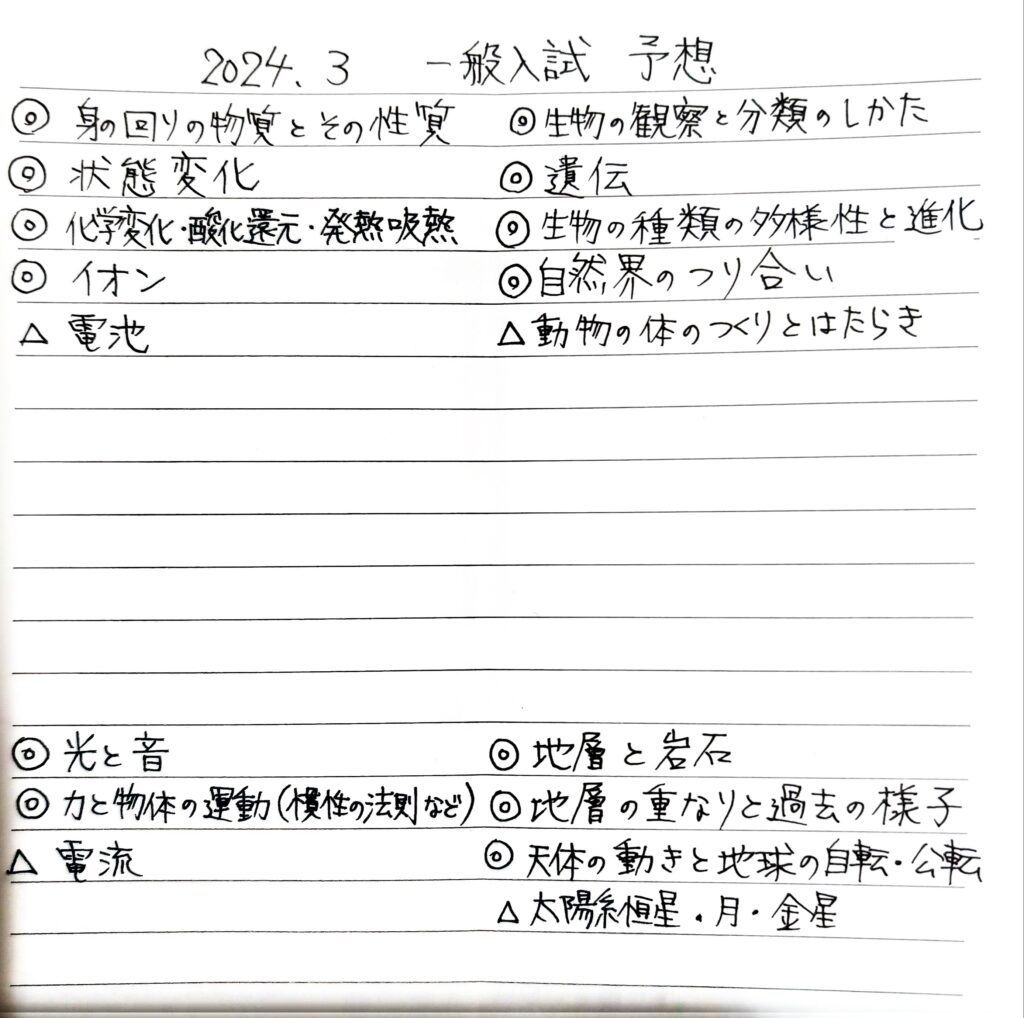 2024.3 一般入試 予想
◎ 身の回りの物質とその性質
◎ 状態変化
◎ 化学変化・酸化還元・発熱吸熱
◎ イオン
△ 電池
◎ 生物の観察と分類のしかた
◎ 遺伝
◎ 生物の種類の多様性と進化
◎ 自然界のつり合い
△ 動物の体のつくりとはたらき
◎ 光と音
◎ 力と物体の運動(慣性の法則など)
△ 電流
◎ 地層と岩石
◎ 地層の重なりと過去の様子
◎ 天体の動きと地球の自転・公転
△ 太陽系恒星・月・金星